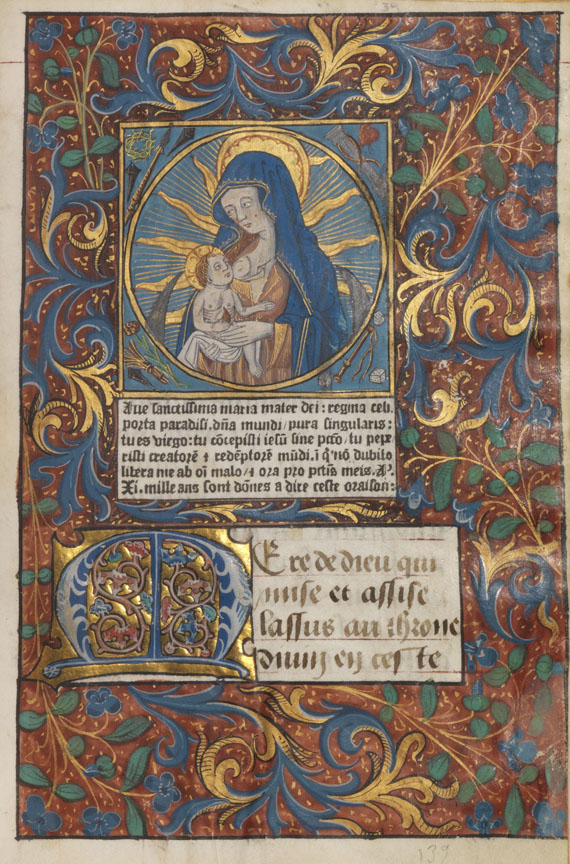 39
Aue sanctissima maria mater dei: regina celi.
porta paradisi. dña mundi/ pura singularis:
tu es virgo: tu cõcepisti iesũ sine pctõ/ tu pepe
risti creatorē ⁊ redēptorē mũdi. ĩ q̃ nõ dubito
libera me ab oĩ malo/ ⁊ ora pro pctis meis.
Xi. mille ans sont dõnes a dire ceste oraison:
MEre de dieu qui
mise et assise
lassus au throne
diuin en ces te
139